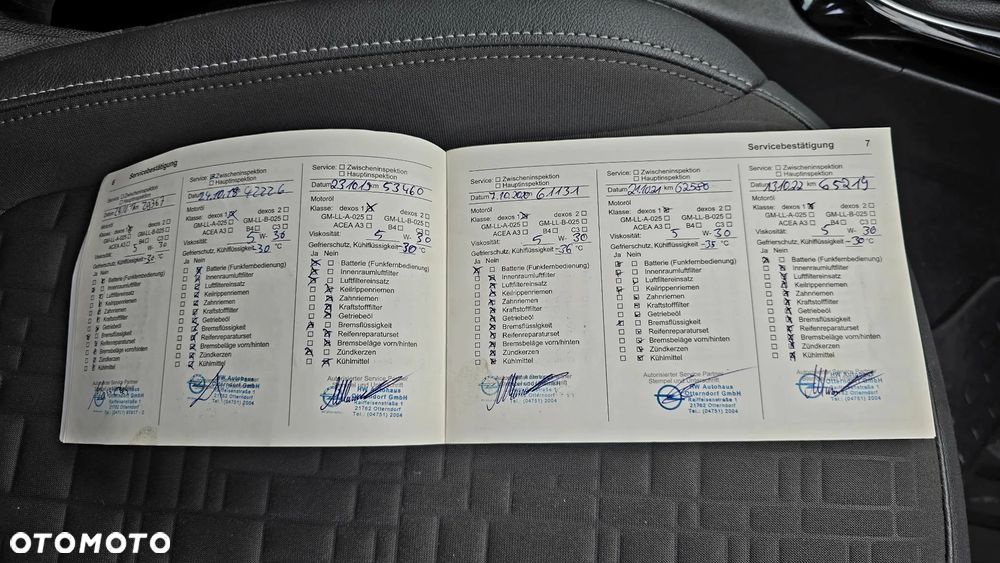 6 Servicebestätigung
Service: Zwischeninspektion
Hauptinspektion
Datum km
Motoröl
Klasse: dexos 1 dexos 2
GM-LL-A-025 GM-LL-B-025
ACEA A3 B4 C3
Viskosität: 5 W- 30
Gefrierschutz, Kühlflüssigkeit -30 °C
Ja Nein
Batterie (Funkfernbedienung)
Innenraumluftfilter
Luftfiltereinsatz
Keilrippenriemen
Zahnriemen
Kraftstofffilter
Getriebeöl
Bremsflüssigkeit
Reifenreparaturset
Bremsbeläge vorn/hinten
Zündkerzen
Kühlmittel
Autorisierter Service Partner
Service: Zwischeninspektion
Hauptinspektion
Datum 24.10.18 km 42226
Motoröl
Klasse: dexos 1 dexos 2
GM-LL-A-025 GM-LL-B-025
ACEA A3 B4 C3
Viskosität: 5 W- 30
Gefrierschutz, Kühlflüssigkeit -30 °C
Ja Nein
Batterie (Funkfernbedienung)
Innenraumluftfilter
Luftfiltereinsatz
Keilrippenriemen
Zahnriemen
Kraftstofffilter
Getriebeöl
Bremsflüssigkeit
Reifenreparaturset
Bremsbeläge vorn/hinten
Zündkerzen
Kühlmittel
HW Autohaus
Otterndorf GmbH
Raiffeisenstraße 1
21762 Otterndorf
Tel.: (04751) 2004
Service: Zwischeninspektion
Hauptinspektion
Datum 23.10.19 km 53460
Motoröl
Klasse: dexos 1 dexos 2
GM-LL-A-025 GM-LL-B-025
ACEA A3 B4 C3
Viskosität: 5 W- 30
Gefrierschutz, Kühlflüssigkeit -30 °C
Ja Nein
Batterie (Funkfernbedienung)
Innenraumluftfilter
Luftfiltereinsatz
Keilrippenriemen
Zahnriemen
Kraftstofffilter
Getriebeöl
Bremsflüssigkeit
Reifenreparaturset
Bremsbeläge vorn/hinten
Zündkerzen
Kühlmittel
Autorisierter Service Partner
Otterndorf GmbH
Raiffeisenstraße 1
21762 Otterndorf
Tel.: (04751) 2004
Servicebestätigung 7
Service: Zwischeninspektion
Hauptinspektion
Datum 7.10.2020 km 61131
Motoröl
Klasse: dexos 1 dexos 2
GM-LL-A-025 GM-LL-B-025
ACEA A3 B4 C3
Viskosität: 5 W- 30
Gefrierschutz, Kühlflüssigkeit -36 °C
Ja Nein
Batterie (Funkfernbedienung)
Innenraumluftfilter
Luftfiltereinsatz
Keilrippenriemen
Zahnriemen
Kraftstofffilter
Getriebeöl
Bremsflüssigkeit
Reifenreparaturset
Bremsbeläge vorn/hinten
Zündkerzen
Kühlmittel
Otterndorf GmbH
Raiffeisenstraße 1
21762 Otterndorf
Tel.: (04751) 2004
Service: Zwischeninspektion
Hauptinspektion
Datum km
Motoröl
Klasse: dexos 1 dexos 2
GM-LL-A-025 GM-LL-B-025
ACEA A3 B4 C3
Viskosität: 5 W- 30
Gefrierschutz, Kühlflüssigkeit -35 °C
Ja Nein
Batterie (Funkfernbedienung)
Innenraumluftfilter
Luftfiltereinsatz
Keilrippenriemen
Zahnriemen
Kraftstofffilter
Getriebeöl
Bremsflüssigkeit
Reifenreparaturset
Bremsbeläge vorn/hinten
Zündkerzen
Kühlmittel
Autorisierter Service Partner
Stempel und Unterschrift
HW Autohaus
Otterndorf GmbH
Raiffeisenstraße 1
21762 Otterndorf
Tel.: (04751) 2004
Service: Zwischeninspektion
Hauptinspektion
Datum km 65219
Motoröl
Klasse: dexos 1 dexos 2
GM-LL-A-025 GM-LL-B-025
ACEA A3 B4 C3
Viskosität: 5 W- 30
Gefrierschutz, Kühlflüssigkeit -30 °C
Ja Nein
Batterie (Funkfernbedienung)
Innenraumluftfilter
Luftfiltereinsatz
Keilrippenriemen
Zahnriemen
Kraftstofffilter
Getriebeöl
Bremsflüssigkeit
Reifenreparaturset
Bremsbeläge vorn/hinten
Zündkerzen
Kühlmittel
Autorisierter Service Partner
Otterndorf GmbH
Raiffeisenstraße 1
21762 Otterndorf
Tel.: (04751) 2004
OTOMOTO